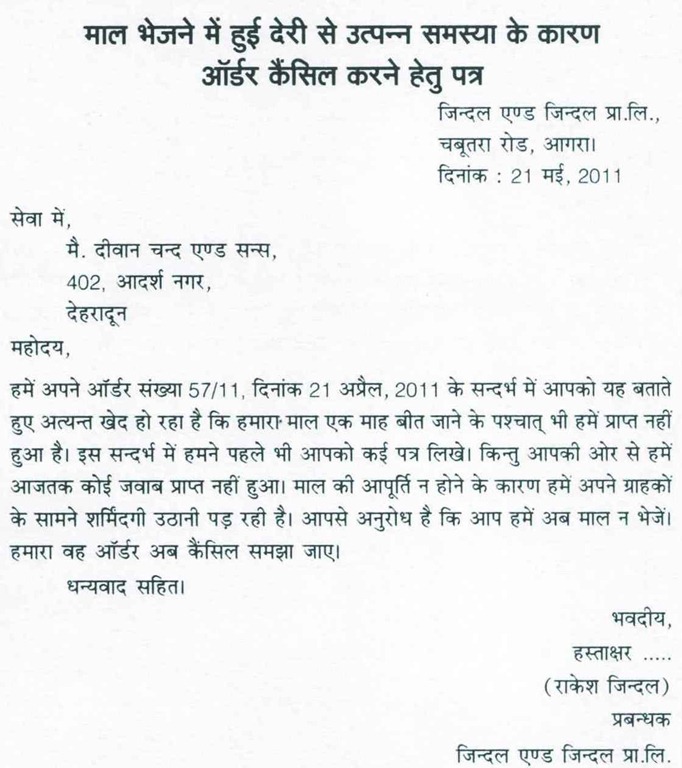 माल भेजने में हुई देरी से उत्पन्न समस्या के कारण
ऑर्डर कैंसिल करने हेतु पत्र
जिन्दल एण्ड जिन्दल प्रा.लि.,
चबूतरा रोड, आगरा।
दिनांक : 21 मई, 2011
सेवा में,
मै. दीवान चन्द एण्ड सन्स,
402, आदर्श नगर,
देहरादून
महोदय,
हमें अपने ऑर्डर संख्या 57/11, दिनांक 21 अप्रैल, 2011 के सन्दर्भ में आपको यह बताते
हुए अत्यन्त खेद हो रहा है कि हमारा माल एक माह बीत जाने के पश्चात् भी हमें प्राप्त नहीं
हुआ है। इस सन्दर्भ में हमने पहले भी आपको कई पत्र लिखे। किन्तु आपकी ओर से हमें
आजतक कोई जवाब प्राप्त नहीं हुआ। माल की आपूर्ति न होने के कारण हमें अपने ग्राहकों
के सामने शर्मिंदगी उठानी पड़ रही है। आपसे अनुरोध है कि आप हमें अब माल न भेजें।
हमारा वह ऑर्डर अब कैंसिल समझा जाए।
धन्यवाद सहित।
भवदीय,
हस्ताक्षर .....
(राकेश जिन्दल)
प्रबन्धक
जिन्दल एण्ड जिन्दल प्रा.लि.